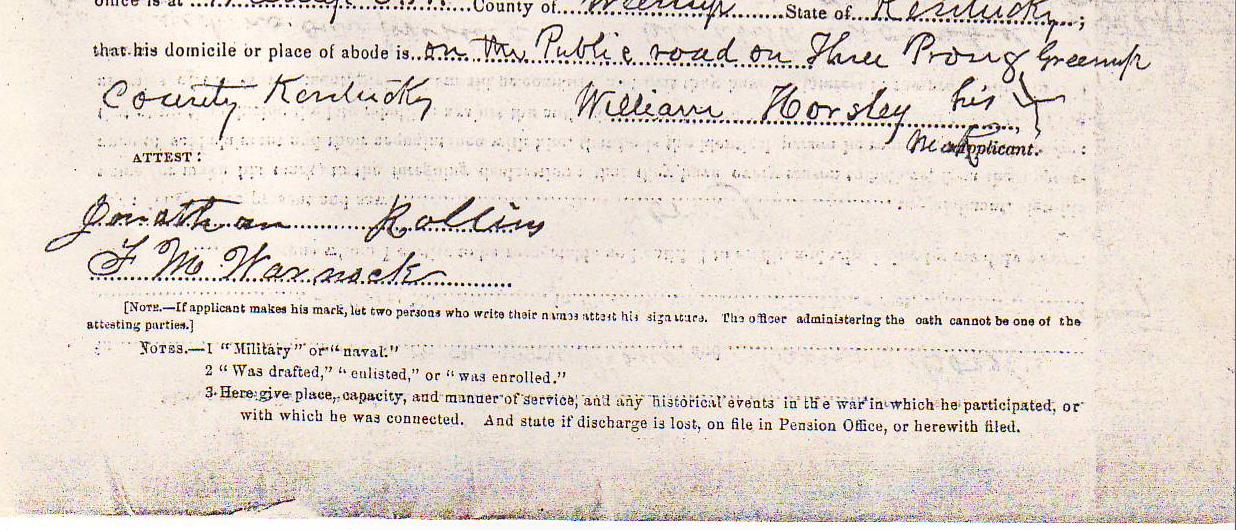 office is at County of Greenup State of Kentucky;
that his domicile or place of abode is on the Public road on Three Prong Greenup
County Kentucky William Horsley his
mark Applicant.
ATTEST:
Jonathan Rollins
F M Warnock
[NOTE.—If applicant makes his mark, let two persons who write their names attest his signature. The officer administering the oath cannot be one of the
attesting parties.]
NOTES.—1 "Military" or "naval."
2 "Was drafted," "enlisted," or "was enrolled."
3 Here give place, capacity, and manner of service, and any historical events in the war in which he participated, or
with which he was connected. And state if discharge is lost, on file in Pension Office, or herewith filed.